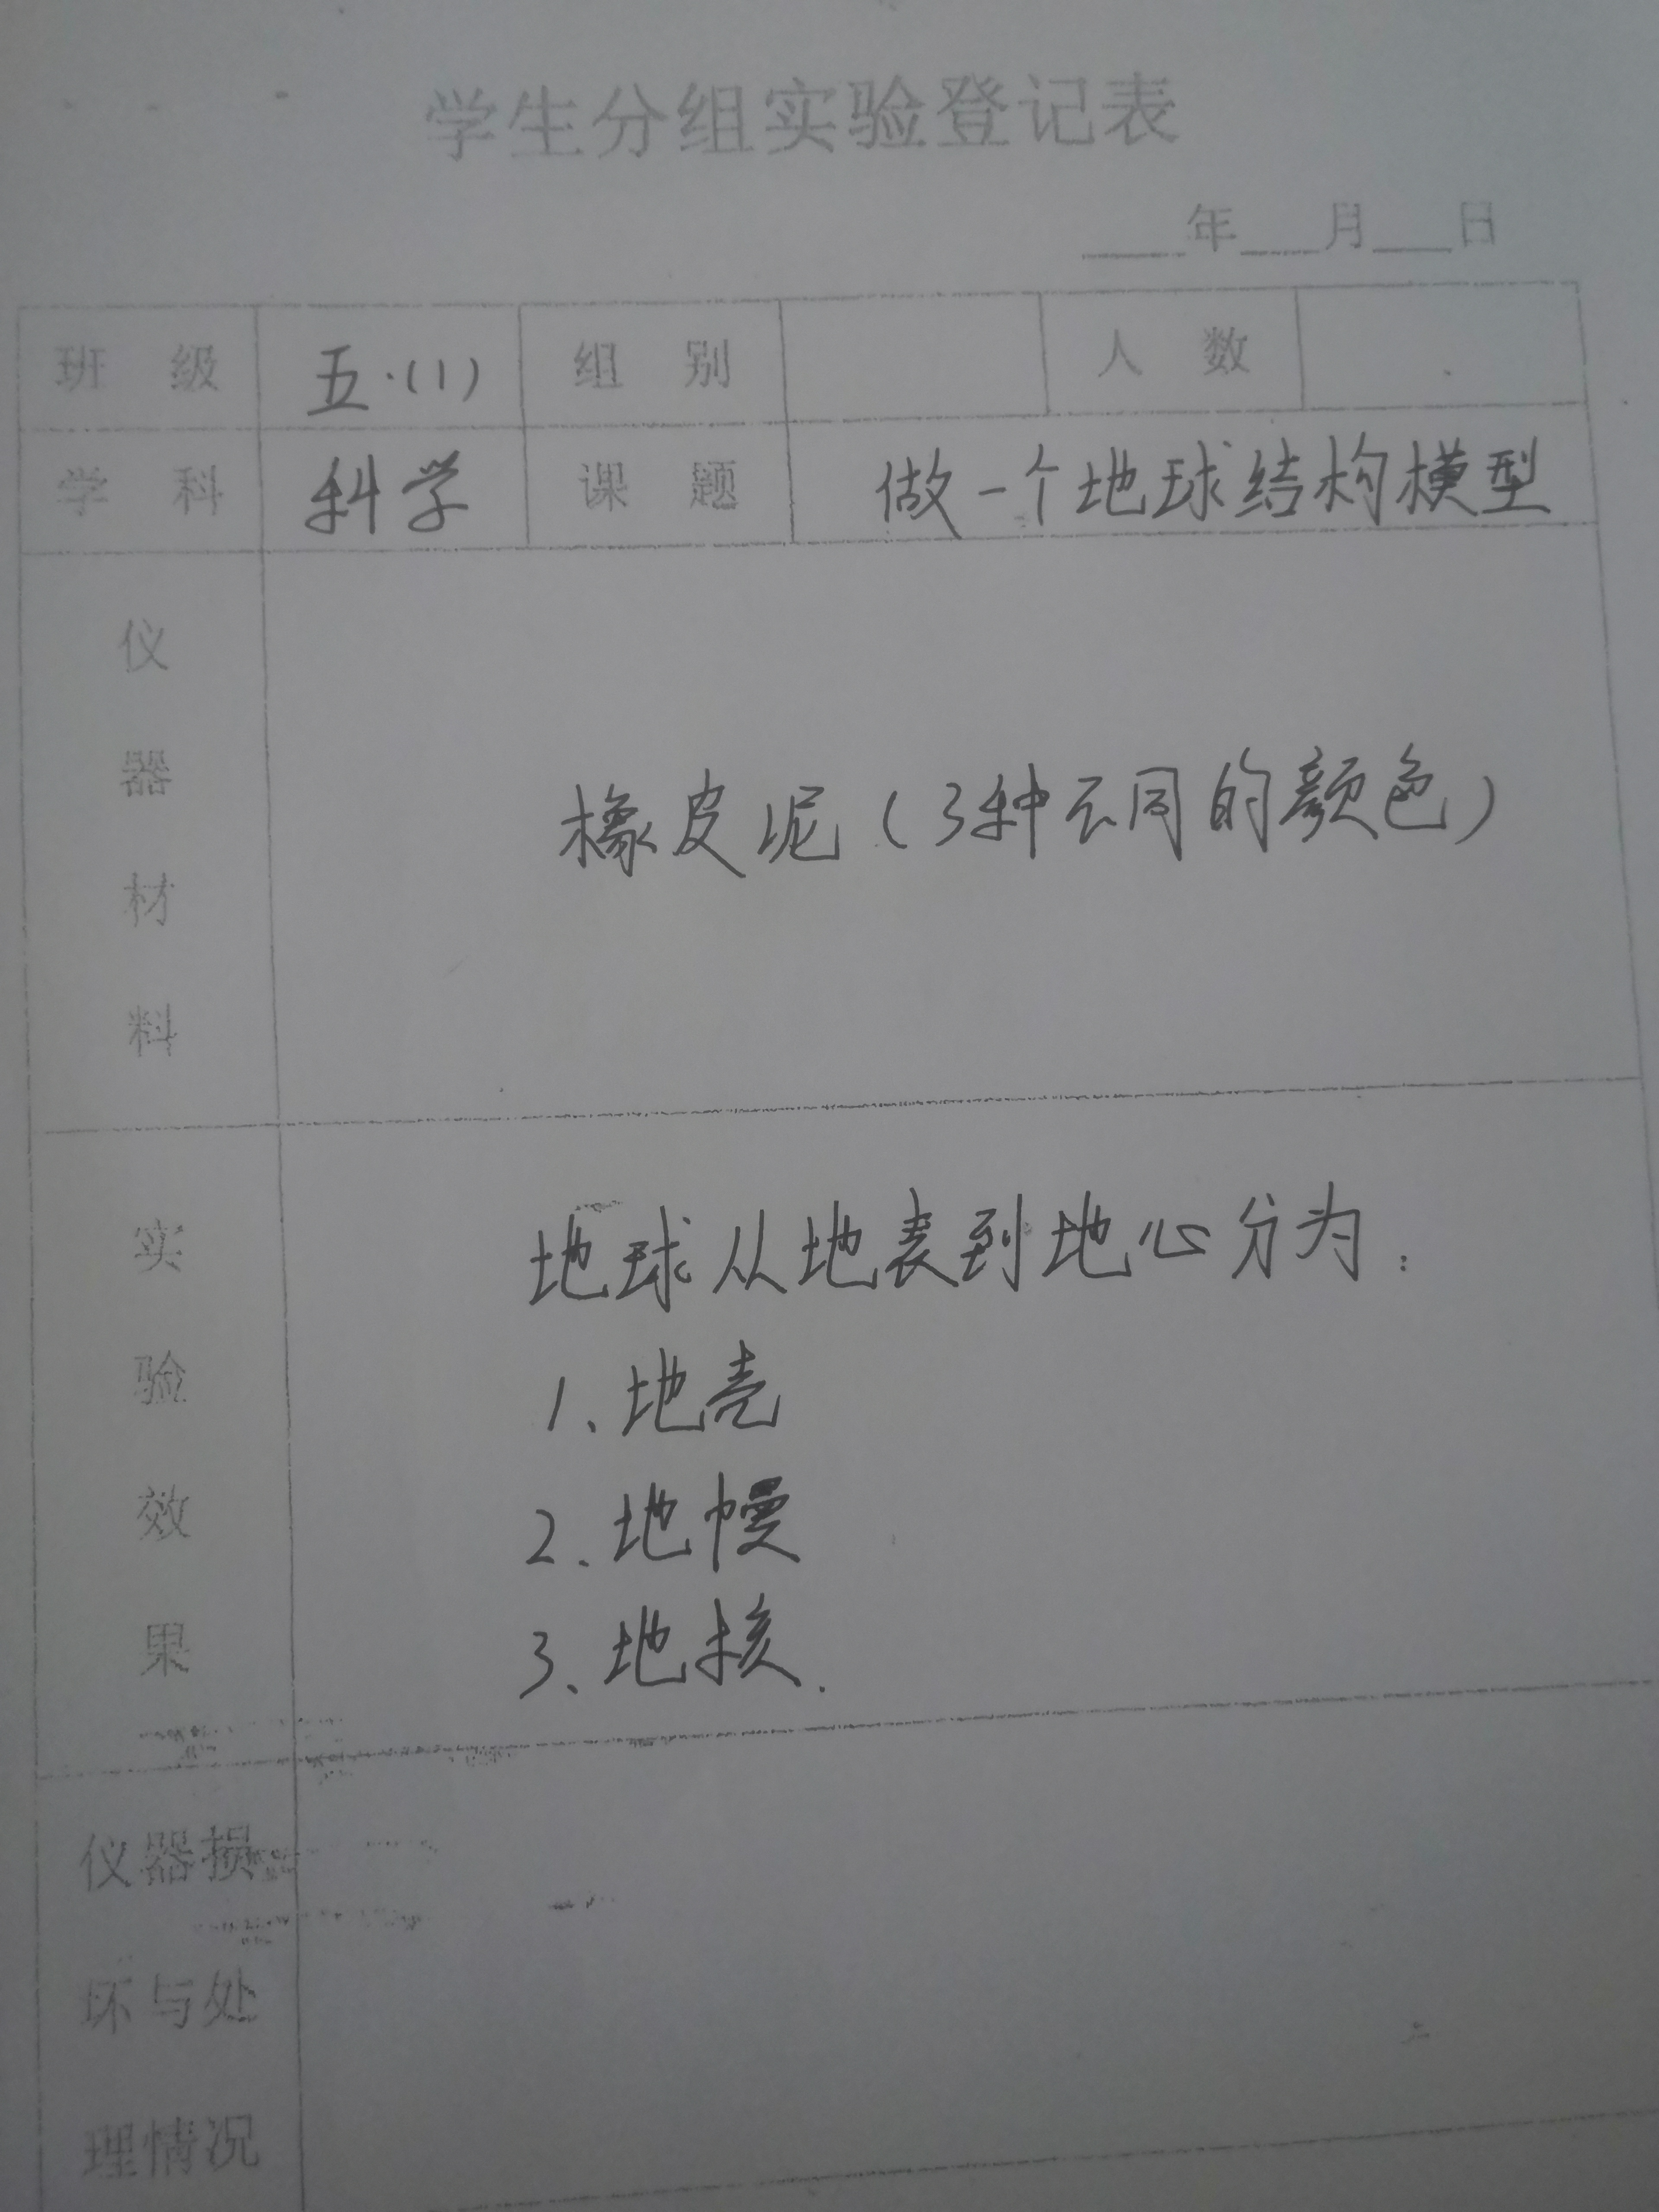 学生分组实验登记表
____年___月___日
班 级 五·(1) 组 别 人 数
学 科 科学 课 题 做一个地球结构模型
仪器材料 橡皮泥(3种不同的颜色)
实验效果 地球从地表到地心分为:
1、地壳
2、地幔
3、地核.
仪器损
坏与处
理情况